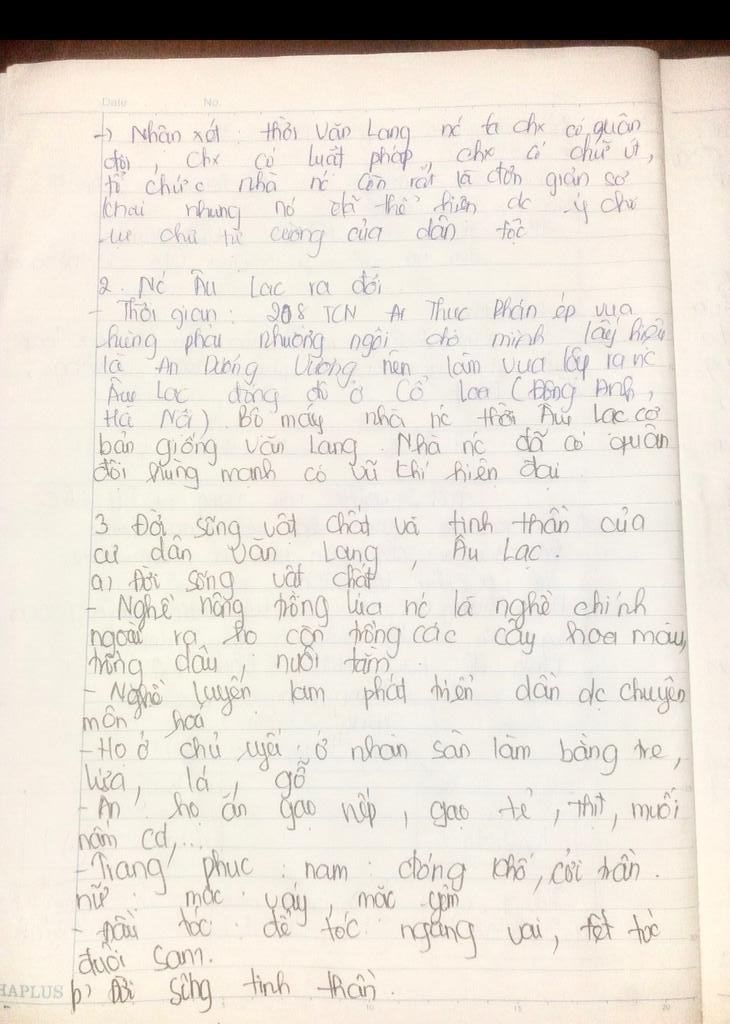 Date No.
-> Nhận xét : thời Văn Lang nc ta chx có quân
đội, chx có luật pháp, chx có chữ vt,
tổ chức nhà nc còn rất là đơn giản sơ
khai nhưng nó đã thể hiện dc ý chí
tự chủ tự cường của dân tộc
2. Nc Âu Lạc ra đời
- Thời gian : 208 TCN Thục Phán ép vua
hùng phải nhường ngôi cho mình lấy hiệu
là An Dương Vương nên làm vua lập ra nc
Âu Lạc đóng đô ở Cổ Loa (Đông Anh,
Hà Nội). Bộ máy nhà nc thời Âu Lạc cơ
bản giống Văn Lang. Nhà nc đã có quân
đội hùng mạnh có vũ khí hiện đại
3 Đời sống vật chất và tinh thần của
cư dân Văn Lang, Âu Lạc.
a) Đời sống vật chất
- Nghề nông trồng lúa nc là nghề chính
ngoài ra họ còn trồng các cây hoa màu,
trồng dâu, nuôi tằm.
- Nghề luyện kam phát triển dần dc chuyên
môn hoá
- Họ ở chủ yếu : ở nhàn sàn làm bằng tre,
lứa, lá, gỗ
- Ăn họ ăn gạo nếp, gạo tẻ, thịt, muối
mắm cá,...
- Trang phục : nam : đóng khố, cởi trần.
nữ : mặc váy, mặc yếm
- Đầu tóc : để tóc ngang vai, tết tóc
đuôi sam.
b) Đời sống tinh thần.
HAPLUS